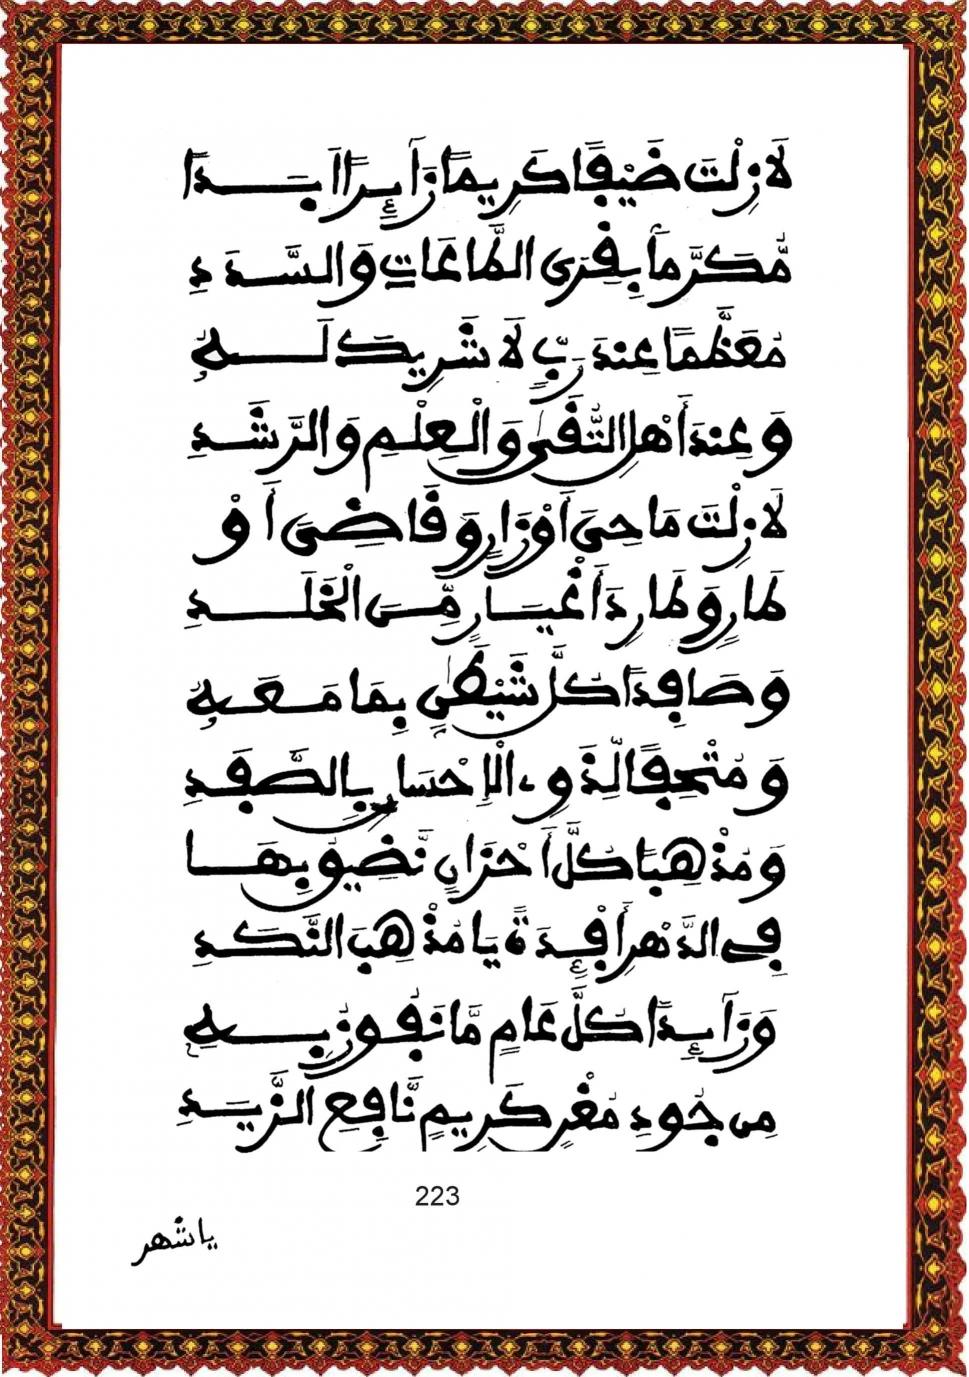 لَا زِلْتَ ضَيْفًا كَرِيمًا زَآئِرًا أَبَدًا
مُّكَرَّمًا بِقِرَى الطَّاعَاتِ وَالسَّدَدِ
مُعَظَّمًا عِندَ رَبٍّ لَا شَرِيكَ لَهُ
وَعِندَ أَهْلِ التُّقَىٰ وَالْعِلْمِ وَالرَّشَدِ
لَا زِلْتَ مَاحِيَ أَوْزَارٍ وَقَاضِيَ أَوْ
طَارٍ وَطَارِدَ أَغْيَارٍ مِّنَ الْخَلَدِ
وَصَافِدًا كُلَّ شَيْطَٰنٍ بِمَا مَعَهُ
وَمُتْحِفًا لِّذَوِي الْإِحْسَانِ بِالصَّفَدِ
وَمُذْهِبًا كُلَّ أَحْزَانٍ نَّضِيقُ بِهَا
فِي الدَّهْرِ أَفْئِدَةً يَا مُذْهِبَ النَّكَدِ
وَزَآئِدًا كُلَّ عَامٍ مَّا نَفُوزُ بِهِ
مِن جُودِ مُغْنٍ كَرِيمٍ نَّافِعِ الزَّيَدِ
223
ياشهر